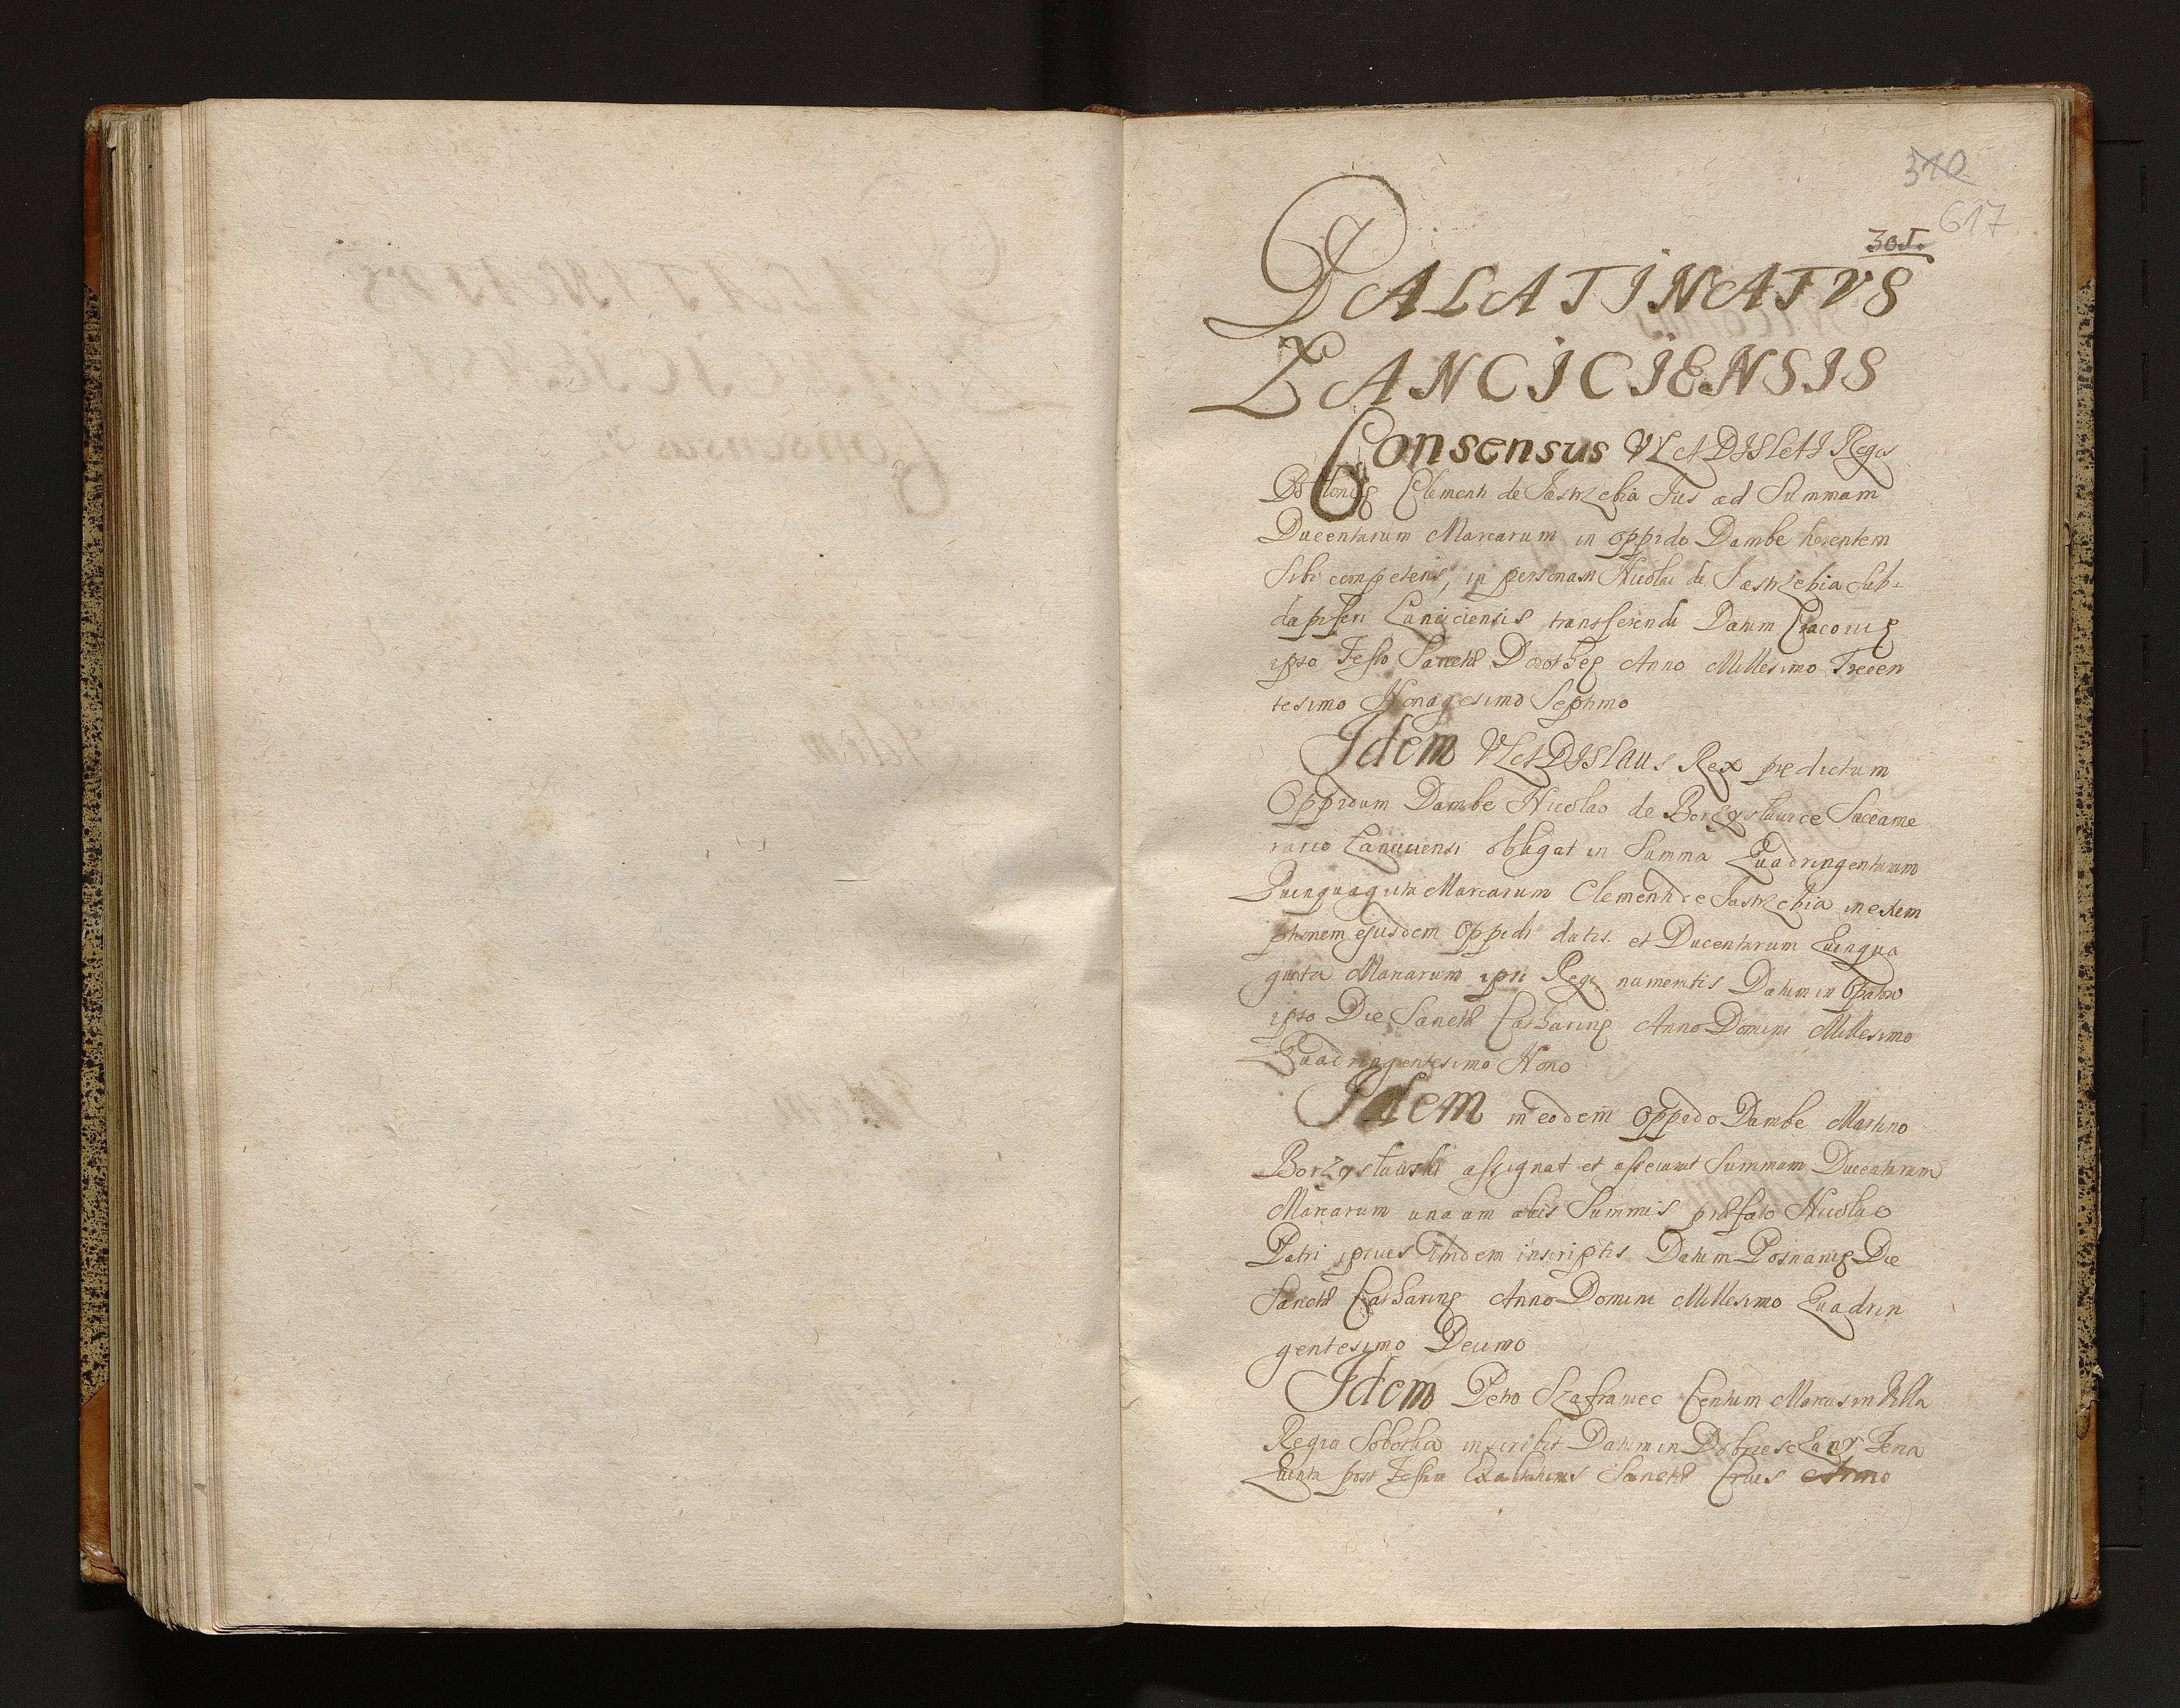 310
617
305.
PALATINATVS
LANCICIENSIS
Consensus VLADISLAI Regis
Polonię Clementi de Jastrzebia Jus ad Summam
Ducentarum Marcarum in oppido Dambe herentem
Sibi competens, in personam Nicolai de Jastrzebia Sub
dapiferi Lanciciensis transferendi Datum Cracovię
ipso Festo Sanctæ Dorotheę Anno Millesimo Trecen
tesimo Nonagesimo Septimo
Idem VLADISlaus Rex predictum
Oppidum Dambe Nicolao de Borzyslauice Succame
rario Lanciciensi obligat in Summa Quadringentarum
Quinquaginta Marcarum Clementi de Jastrzebia in exem
ptionem ejusdem Oppidi datis et Ducentarum Quinqua
ginta Marcarum ipsi Regi numeratis Datum in
ipso Die Sanctæ Catharinę Anno Domini Millesimo
Quadringentesimo Nono
Idem in eodem Oppido Dambe Martino
Borzyslauski assignat et assecurat Summam Ducentarum
Marcarum una cum aliis Summis præfato Nicolao
Patri ipsius ibidem inscriptis Datum Posnanię Die
Sanctæ Catharinę Anno Domini Millesimo Quadrin
gentesimo Decimo
Idem Petro Szafraniec Centum Marcas in Villa
Regia Sobotka inscribit Datum in Feria
Quinta post Festum Exaltationis Sanctæ Crucis Anno